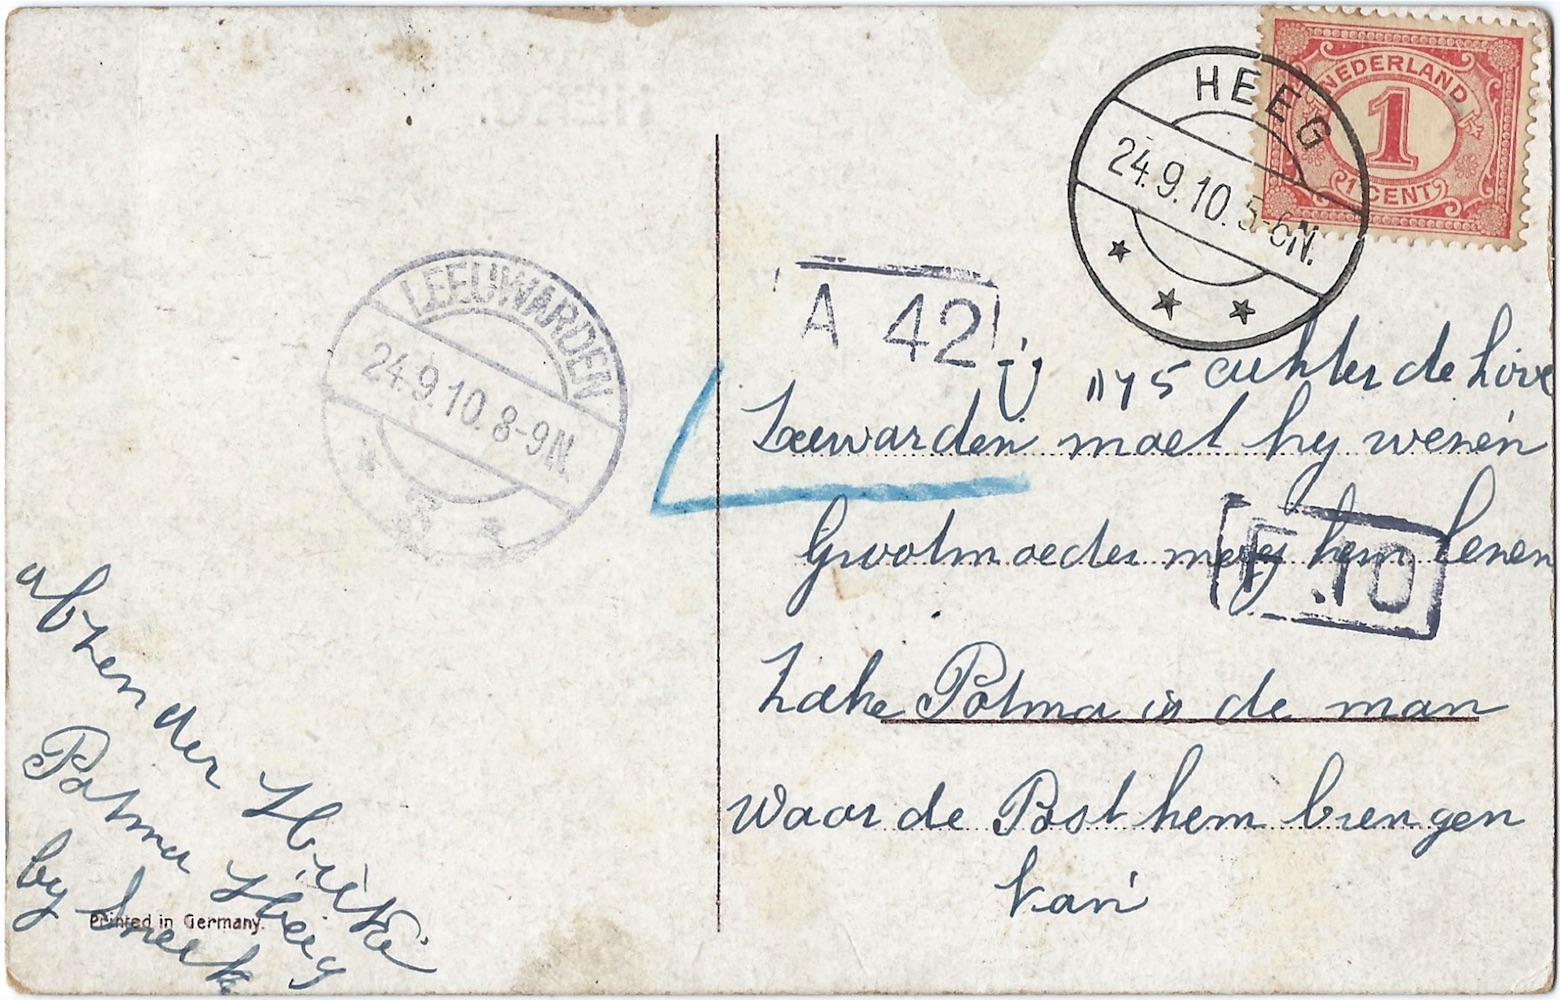 HEEG
24.9.10. 5-6N.
NEDERLAND
1
1 CENT
LEEUWARDEN
24.9.10. 8-9N
3
A 42
115 achter de hove
Leewarden moet hy wesen
Grootmoeder mag hem lesen
Potma is de man
waar de Post hem brengen
kan
F 10
afzender
Potma Heeg
by Sneek
Printed in Germany.